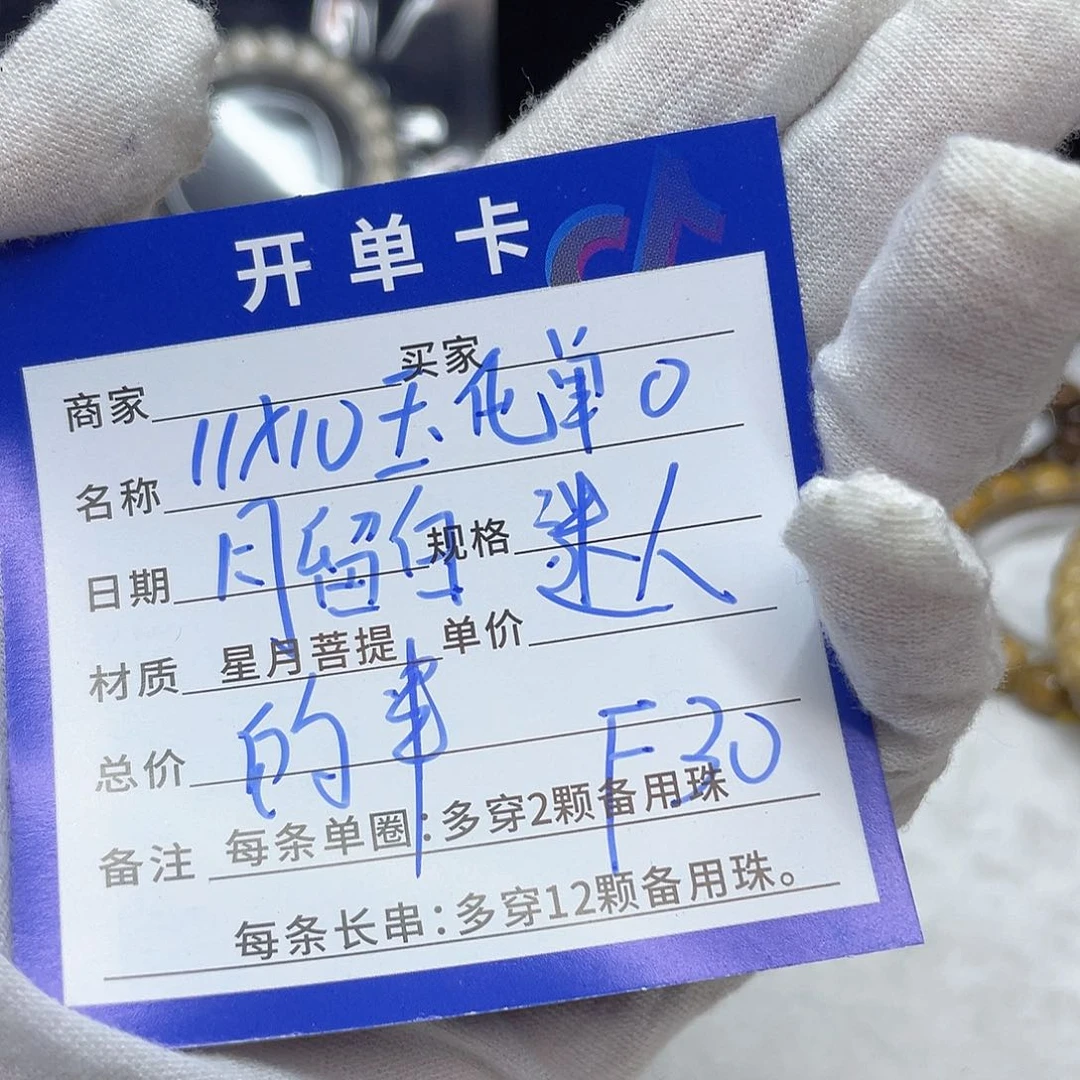 开单卡
商家 买家
11X10天 单0
名称
月留白 迷人
日期 规格
材质 星月菩提 单价
的串
总价
F30
备注 每条单圈:多穿2颗备用珠
每条长串:多穿12颗备用珠。